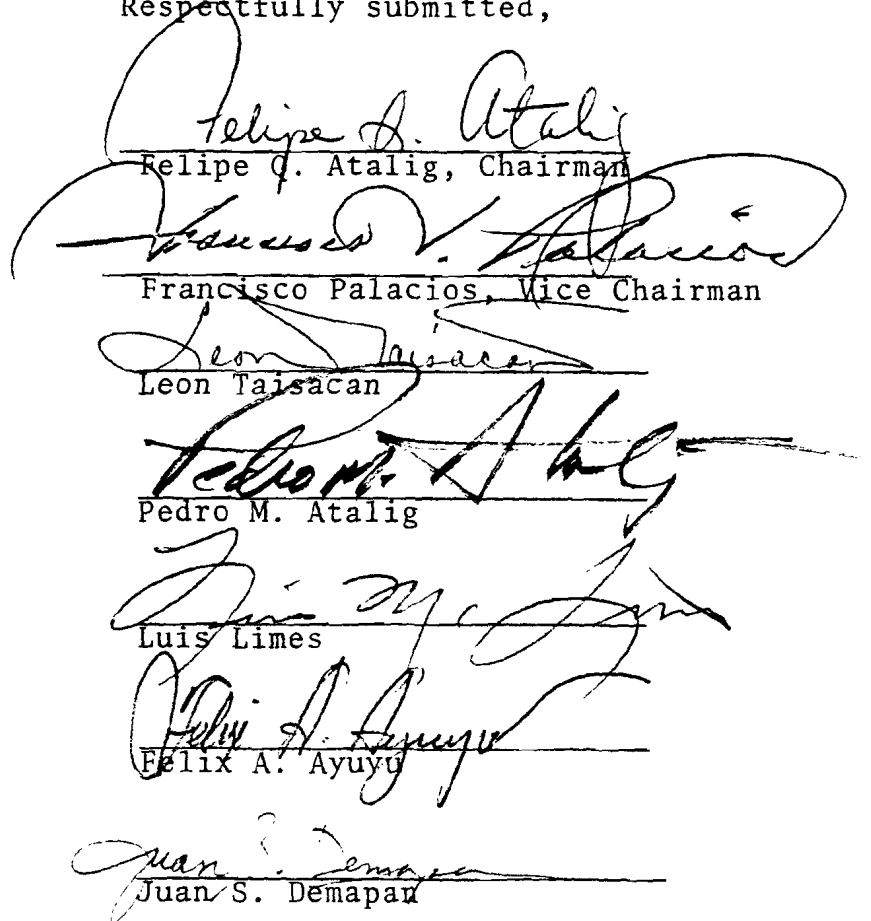 Respectfully submitted,
Felipe Q. Atalig
Felipe Q. Atalig, Chairman
Francisco V. Palacios
Francisco Palacios, Vice Chairman
Leon Taisacan
Leon Taisacan
Pedro M. Atalig
Pedro M. Atalig
Luis M. Limes
Luis Limes
Felix A. Ayuyu
Felix A. Ayuyu
Juan S. Demapan
Juan S. Demapan